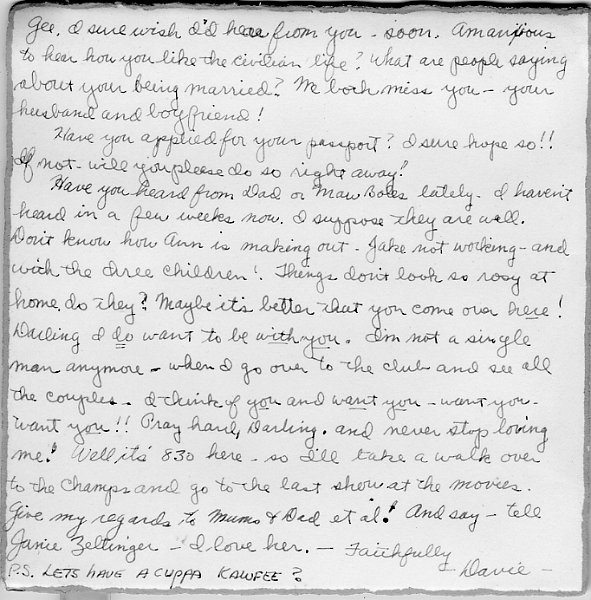 Gee, I sure wish I'd hear from you - soon. Am anxious
to hear how you like the civilian life? What are people saying
about your being married? We both miss you - your
husband and boyfriend!
Have you applied for your passport? I sure hope so!!
If not - will you please do so right away!
Have you heard from Dad or Maw Boles lately - I haven't
heard in a few weeks now. I suppose they are well.
Don't know how Ann is making out - Jake not working - and
with the three children! Things don't look so rosy at
home, do they? Maybe it's better that you come over here!
Darling I do want to be with you. I'm not a single
man anymore - when I go over to the club and see all
the couples - I think of you and want you - want you -
want you!! Pray hard, Darling, and never stop loving
me! Well it's 830 here - so I'll take a walk over
to the Champs and go to the last show at the movies.
Give my regards to Mums & Dad et al! And say - tell
Janie Zeltinger - I love her. - Faithfully
- Davie -
P.S. LETS HAVE A CUPPA KAWFEE?